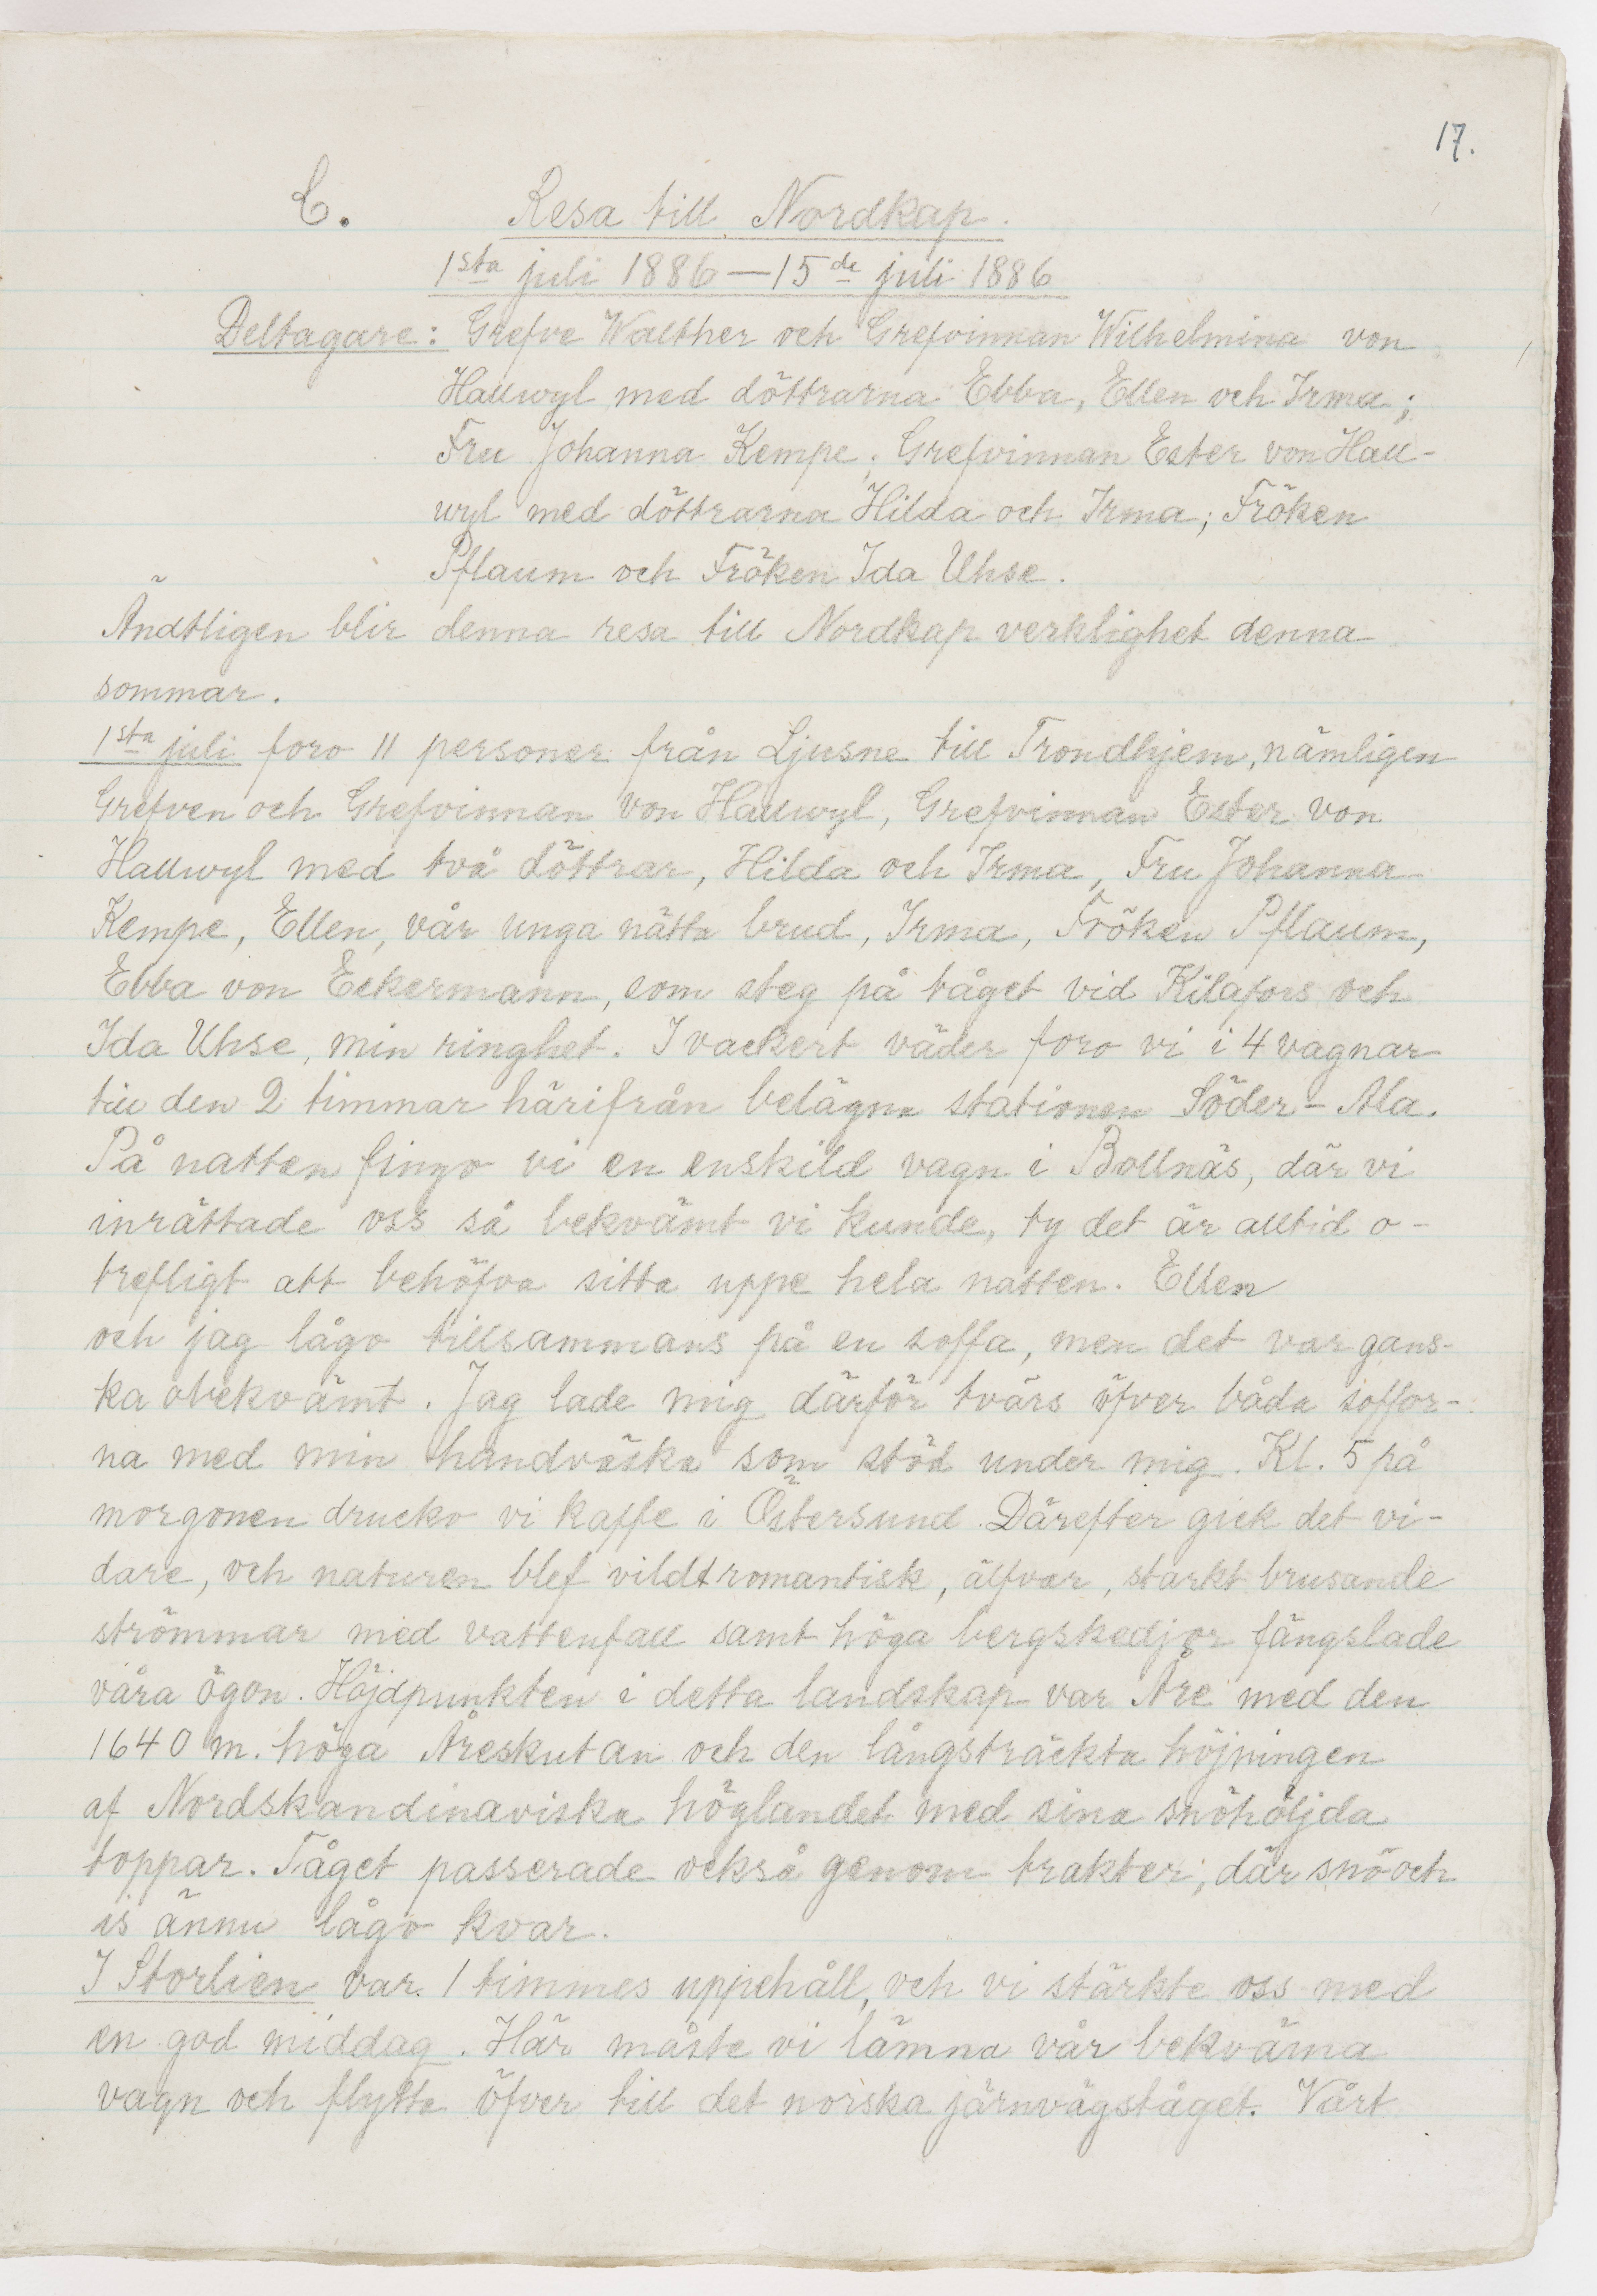 17.
C. Resa till Nordkap.
1sta juli 1886—15de juli 1886
Deltagare: Grefve Walther och Grefvinnan Wilhelmina von
Hallwyl med döttrarna Ebba, Ellen och Irma;
Fru Johanna Kempe; Grefvinnan Ester von Hall-
wyl med döttrarna Hilda och Irma; Fröken
Pflaum och Fröken Ida Uhse.
Ändtligen blir denna resa till Nordkap verklighet denna
sommar.
1sta juli foro 11 personer från Ljusne till Trondhjem, nämligen
Grefven och Grefvinnan von Hallwyl, Grefvinnan Ester von
Hallwyl med två döttrar, Hilda och Irma, Fru Johanna
Kempe, Ellen, vår unga nätta brud, Irma, Fröken Pflaum,
Ebba von Eckermann, som steg på tåget vid Kilafors och
Ida Uhse, min ringhet. I vackert väder foro vi i 4 vagnar
till den 2 timmar härifrån belägna stationen Söder-Ala.
På natten fingo vi en enskild vagn i Bollnäs, där vi
inrättade oss så bekvämt vi kunde, ty det är alltid o-
trefligt att behöfva sitta uppe hela natten. Ellen
och jag lågo tillsammans på en soffa, men det var gans-
ka obekvämt. Jag lade mig därför tvärs öfver båda soffor-
na med min handväska som stöd under mig. Kl. 5 på
morgonen drucko vi kaffe i Östersund. Därefter gick det vi-
dare, och naturen blef vildtromantisk, älfvar, starkt brusande
strömmar med vattenfall samt höga bergskedjor fängslade
våra ögon. Höjdpunkten i detta landskap var Åre med den
1640 m. höga Åreskutan och den långsträckta höjningen
af Nordskandinaviska höglandet med sina snöhöljda
toppar. Tåget passerade också genom trakter, där snö och
is ännu lågo kvar.
I Storlien var 1 timmes uppehåll, och vi stärkte oss med
en god middag. Här måste vi lämna vår bekväma
vagn och flytta öfver till det norska järnvägståget. Vårt